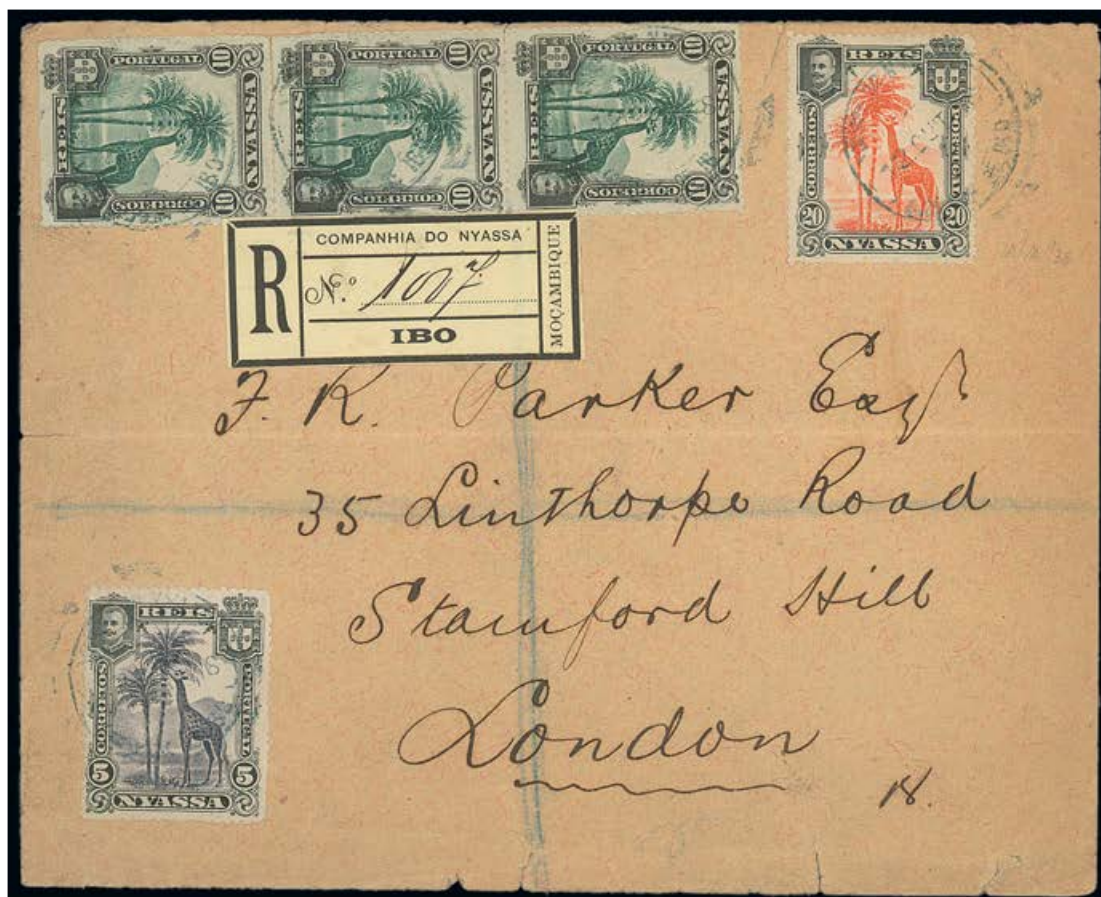 PORTUGAL
10 10
REIS NYASSA
10
CORREIOS
PORTUGAL
10 10
REIS NYASSA
10
CORREIOS
PORTUGAL
10 10
REIS NYASSA
10
CORREIOS
REIS
CORREIOS PORTUGAL
20 20
NYASSA
IBO
R
COMPANHIA DO NYASSA
N.º 1007.
IBO
MOÇAMBIQUE
F. K. Parker Esqr
35 Linthorpe Road
Stamford Hill
London
18.
REIS
CORREIOS PORTUGAL
5 5
NYASSA